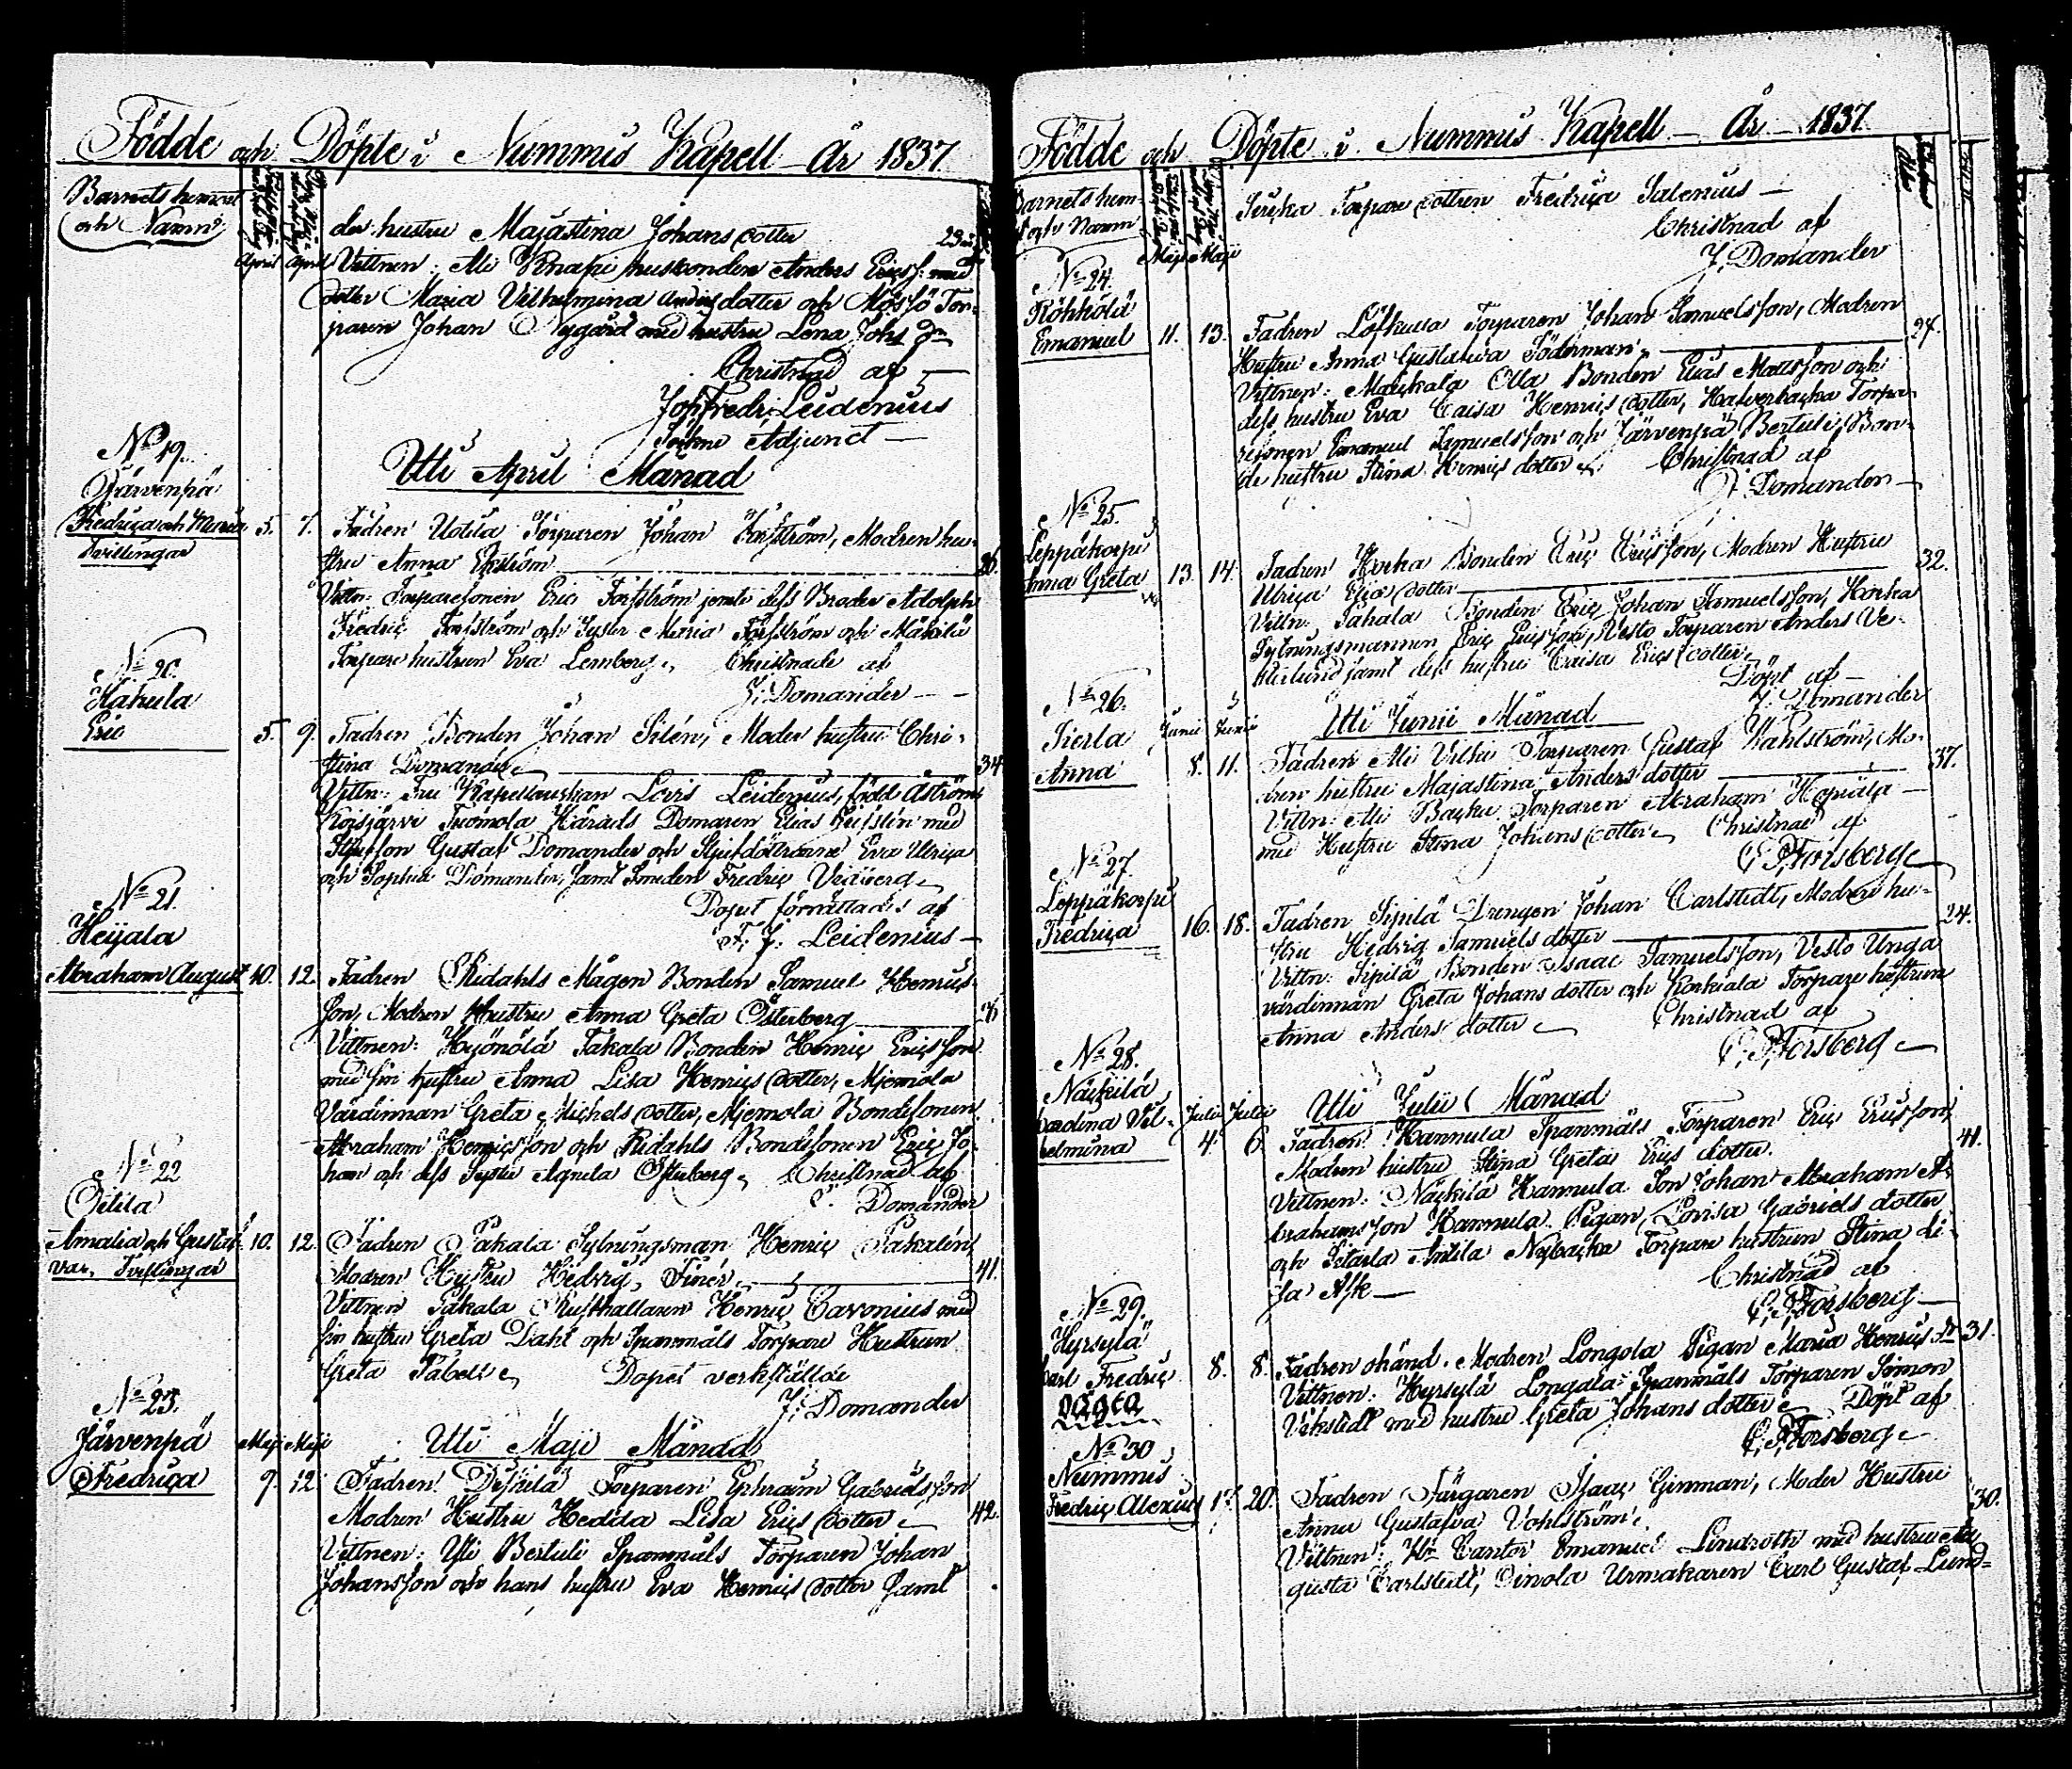 Födde och Döpte i Nummis Kapell År 1837.
Barnets hemvist
och Namn
April April
des hustru Majastina Johans dotter 29
Vittnen: Ali Knapi husbonden Anders Ericss: med
dotter Maria Vilhelmina Anders dotter och Tor-
paren Johan Nygård med hustru Lena Johs dr
Christnad af
Joh Fredr: Leidenius
Sockne Adjunct
Uti April Månad
No 19.
Järvenpä
Fredrica och Maria
Tvillingar
5. 7. Fadren Uotila Torparen Johan Forsström, Modren hu-
stru Anna Ekström 26.
Vittn: Torparesonen Eric Forsström jemte dess Broder Adolph
Fredric Forsström och Syster Maria Forsström och Mäkilä
Torpare hustrun Eva Lemberg. Christnade af
J. Domander
No 20.
Hakula
Eric
5. 9. Fadren Bonden Johan Silén, Moder hustru Chri-
stina Domander 34
Vittn: Fru Kapellanskan Lovis Leidenius, född Åström
Koisjärvi Tuomola Härads Domaren Elias med
Styfson Gustaf Domander och Styfdöttrarna Eva Ulrica
och Sophia Domander, samt Smeden Fredric
Dopet förrättades af
F. J. Leidenius
No 21.
Heijala
Abraham August
10. 12. Fadren Ridahls Mågen Bonden Samuel Henrics-
son, Modren Hustru Anna Greta Österberg 26
Vittnen: Hyönölä Takala Bonden Henric Ericsson
med sin hustru Anna Lisa Henrics dotter, Mjemola
Värdinnan Greta Michels dotter, Mjemola Bondesonen
Abraham Henricsson och Ridahls Bondesonen Eric Jo-
han och dess Syster Agneta Österberg. Christnad af
Domander
No 22
Oitila
Amalia och Gustaf-
var. Tvillingar
10. 12. Fadren Pakala Sytningsman Henric Pakalén,
Modren Hustru Hedvig Finér 41.
Vittnen Pakala Rusthållaren Henric Cavonius med
sin hustru Greta Dahl och Spanmåls Torpare Hustrun
Greta Tabell Dopet verkställde
J. Domander
No 23.
Järvenpä
Fredrica
Maji Maji
Uti Maji Månad
9. 12 Fadren Torparen Ephraim Gabrielsson
Modren Hustru Hedda Lisa Erics dotter 42.
Vittnen: Yli Bertuli Spanmåls Torparen Johan
Johansson och hans hustru Eva Henrics dotter samt
Födde och Döpte i Nummis Kapell År 1837
Barnets hem-
och Namn
Maji Maji
Torpare dottren Fredrica Salenius
Christnad af
J. Domander
No 24.
Röhkölä
Emanuel
11. 13. Fadren Löfkulla Torparen Johan Samuelsson, Modren
Hustru Anna Gustava Söderman 24.
Vittnen: Maikala Olla Bonden Elias Mattsson och
dess hustru Eva Caisa Henrics dotter, Torpa-
resonen Emanuel Samuelsson och Järvenpä Bertuli Bon-
de hustru Stina Henrics dotter Christnad af
J. Domander
No 25.
Leppäkorpi
Anna Greta
13. 14. Fadren Horka Bonden Eric Ericsson, Modren Hustru
Ulrica Elias dotter 32.
Vittn: Pahala Bonden Eric Johan Samuelsson, Horka
Sytningsmannen Eric Ericsson, Vesto Torparen Anders Ve-
sterlund jämt dess hustru Caisa Erics dotter.
Döpt af
J. Domander
No 26.
Sierla
Anna
Junii Junii
Uti Junii Månad
8. 11. Fadren Ali Vilku Torparen Gustaf Wahlström, Mo-
dren hustru Majastina Anders dotter 37.
Vittn: Ali Backu Torparen Abraham
med Hustru Stina Johans dotter Christnad af
C. F. Forsberg
No 27.
Leppäkorpi
Fredrica
16. 18. Fadren Sipilä Drengen Johan Carlstedt, Modren hu-
stru Hedvig Samuels dotter 24.
Vittn: Sipilä Bonden Isaac Samuelsson, Vesto Unga
värdinnan Greta Johans dotter och Korkiala Torpare hustrun
Anna Anders dotter Christnad af
C. F. Forsberg
No 28.
Näykilä
Carolina Vil-
helmina
Julii Julii
Uti Julii Månad
4. 6. Fadren Hannula Spanmåls Torparen Eric Ericsson,
Modren hustru Stina Greta Erics dotter. 41.
Vittnen: Näykilä Hannula Son Johan Abraham A-
brahamsson Hannula Pigan, Lovisa Gabriels dotter
och Setarla Antila Nybacka Torpare hustrun Stina Li-
sa Ask Christnad af
C. F. Forsberg
No 29.
Hyrsylä
Carl Fredric
oägta
8. 8. Fadren okänd. Modren Longola Pigan Maria Henrics dr 31.
Vittnen: Hyrsylä Longala Spanmåls Torparen Simon
Vikstedt med hustru Greta Johans dotter Döpt af
C. F. Forsberg
No 30
Nummis
Fredric Alexius
17. 20. Fadren Färgaren Isaac Ginman, Moder Hustru
Anna Gustafva Vahlström. 30.
Vittnen: Hr Cantor Emanuel Lindroth med hustru Au-
gusta Carlstedt, Oinola Urmakaren Carl Gustaf Lund=